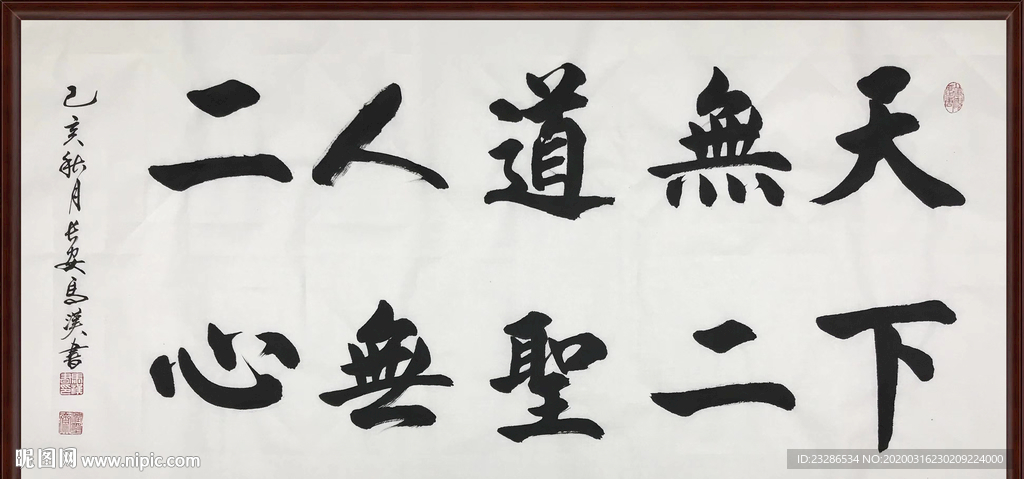 天下
無二
道聖
人無
二心
己亥秋月長安馬漢書
昵图网 www.nipic.com
ID:23286534 NO:20200316230209224000